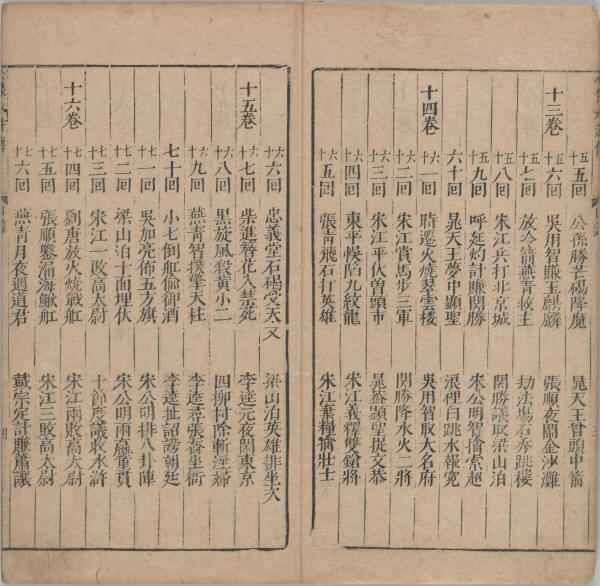 五十五回 公孫勝芒碭降魔 晁天王曾頭中箭
十三卷 五十六回 吳用智賺玉麒麟 張順夜鬧金沙灘
五十七回 放冷箭燕青救主 劫法場石秀跳樓
五十八回 宋江兵打北京城 關勝議取梁山泊
五十九回 呼延灼計賺關勝 宋公明智擒索超
六十回 晁天王夢中顯聖 浪裡白跳水報冤
十四卷 六十一回 時遷火燒翠雲樓 吳用智取大名府
六十二回 宋江賞馬步三軍 關勝降水火二將
六十三回 宋江平伏曾頭市 晁蓋顯聖捉文恭
六十四回 東平悞陷九紋龍 宋江義釋雙鎗將
六十五回 張青飛石打英雄 宋江棄糧擒壯士
六十六回 忠義堂石碣受天文 梁山泊英雄排坐次
十五卷 六十七回 柴進簪花入禁苑 李逵元夜鬧東京
六十八回 黑旋風殺黃小二 四柳村除斬淫婦
六十九回 燕青智撲擎天柱 李逵尋張喬坐衙
七十回 小七倒舡偷御酒 李逵扯詔謗朝廷
七十一回 吳加亮佈五方旗 宋公明排八卦陣
七十二回 梁山泊十面埋伏 宋公明兩贏童貫
七十三回 宋江一敗高太尉 十節度議收水滸
十六卷 七十四回 劉唐放火燒戰舡 宋江兩敗高太尉
七十五回 張順鑿漏海鰍舡 宋江三敗高太尉
七十六回 燕青月夜遇道君 戴宗定計賺蕭讓
四